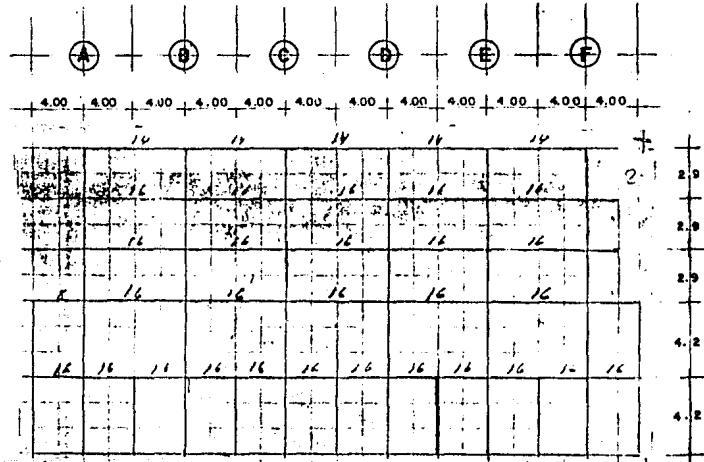 A B C D E F
4.00 4.00 4.00 4.00 4.00 4.00 4.00 4.00 4.00 4.00 4.00 4.00
14 14 14 14 14
2
2.9
16 16 16 16
2.9
16 16 16 16 16
2.9
8 16 16 16 16 16
4.2
16 16 16 16 16 16 16 16 16 16 16
4.2